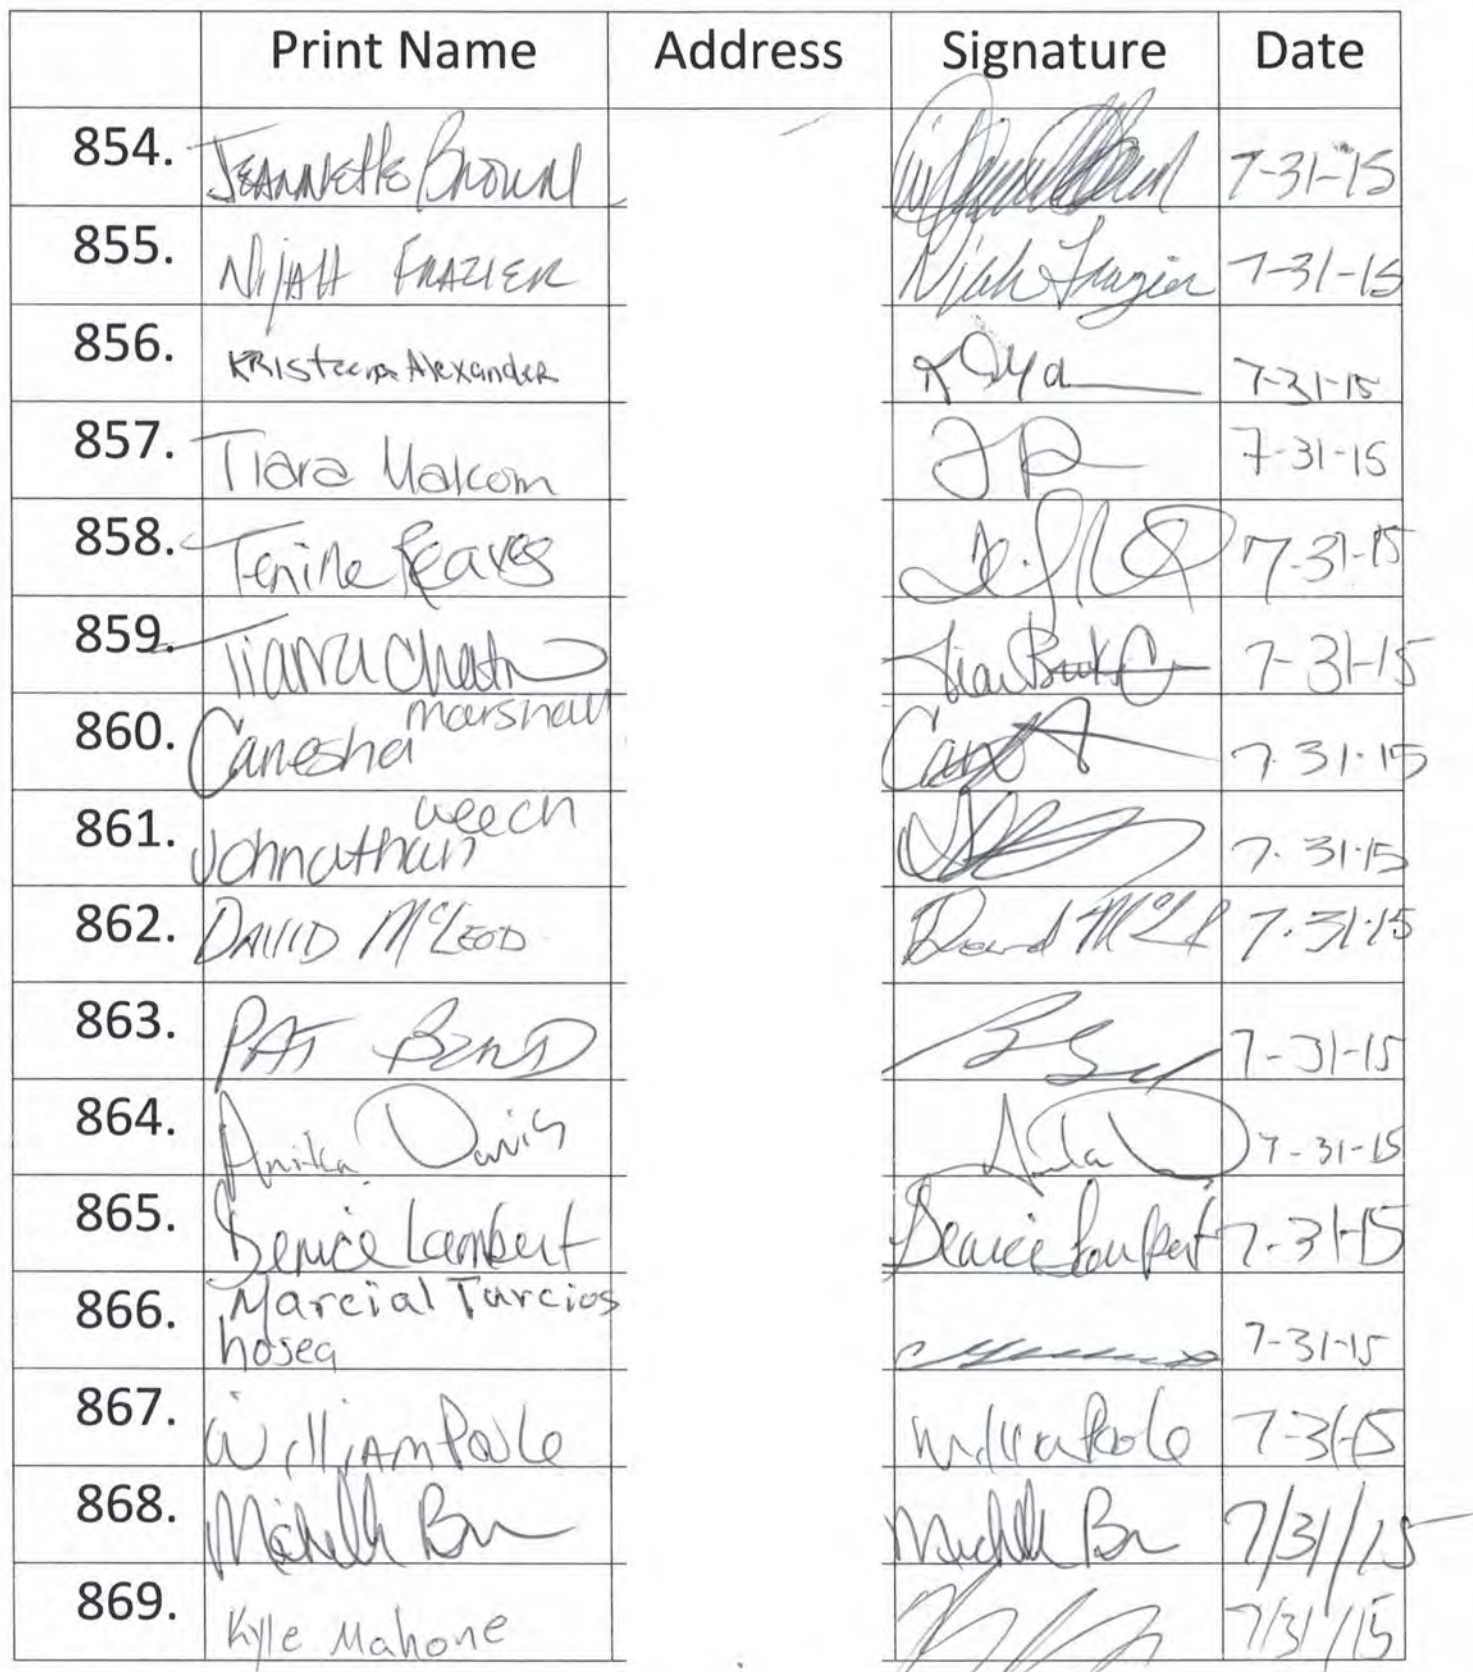 Print Name Address Signature Date
854. Jeannette Brown 7-31-15
855. Nijah Frazier Nijah Frazier 7-31-15
856. Kristeena Alexander 7-31-15
857. Tiara Malcom 7-31-15
858. Tenine Reaves 7-31-15
859. 7-31-15
860. Canesha marshall 7.31.15
861. Johnathan weech 7.31.15
862. DAVID McLEOD David 7.31.15
863. PAT 7-31-15
864. Anika Davis 7-31-15
865. Lambert 7-31-15
866. Marcial Turcios
hosea 7-31-15
867. William Poole William Poole 7-31-15
868. Michelle Michelle 7/31/15
869. Kyle Mahone 7/31/15